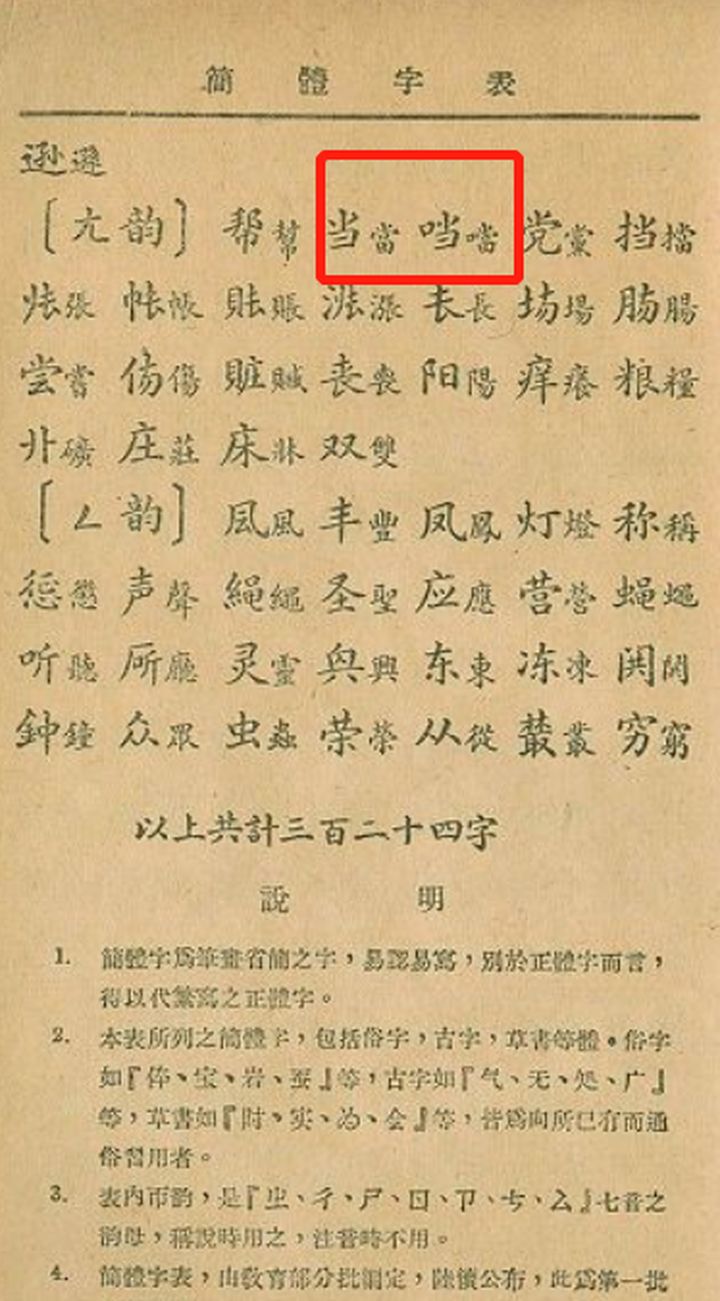 簡體字表
逊遜
〔ㄤ韵〕 帮幫 当當 吆噹 党黨 挡擋
张張 帐帳 账賬 涨漲 长長 场場 肠腸
尝嘗 伤傷 赃贓 丧喪 阳陽 痒癢 粮糧
卝礦 庄莊 床牀 双雙
〔ㄥ韵〕 凬風 丰豐 凤鳳 灯燈 称稱
惩懲 声聲 绳繩 圣聖 应應 营營 蝇蠅
听聽 厛廳 灵靈 兴興 东東 冻凍 関閧
鈡鐘 众眾 虫蟲 荣榮 从從 叢叢 穷窮
以上共計三百二十四字
說明
1. 簡體字爲筆畫省簡之字,易認易寫,別於正體字而言,
得以代繁寫之正體字。
2. 本表所列之簡體字,包括俗字,古字,草書等體。俗字
如『体、宝、岩、蚕』等,古字如『气、无、処、广』
等,草書如『时、实、为、会』等,皆爲向所已有而通
俗習用者。
3. 表內帀韵,是『ㄓ、ㄔ、ㄕ、ㄖ、ㄗ、ㄘ、ㄙ』七音之
韵母,稱說時用之,注音時不用。
4. 簡體字表,由敎育部分批制定,陸續公布,此爲第一批